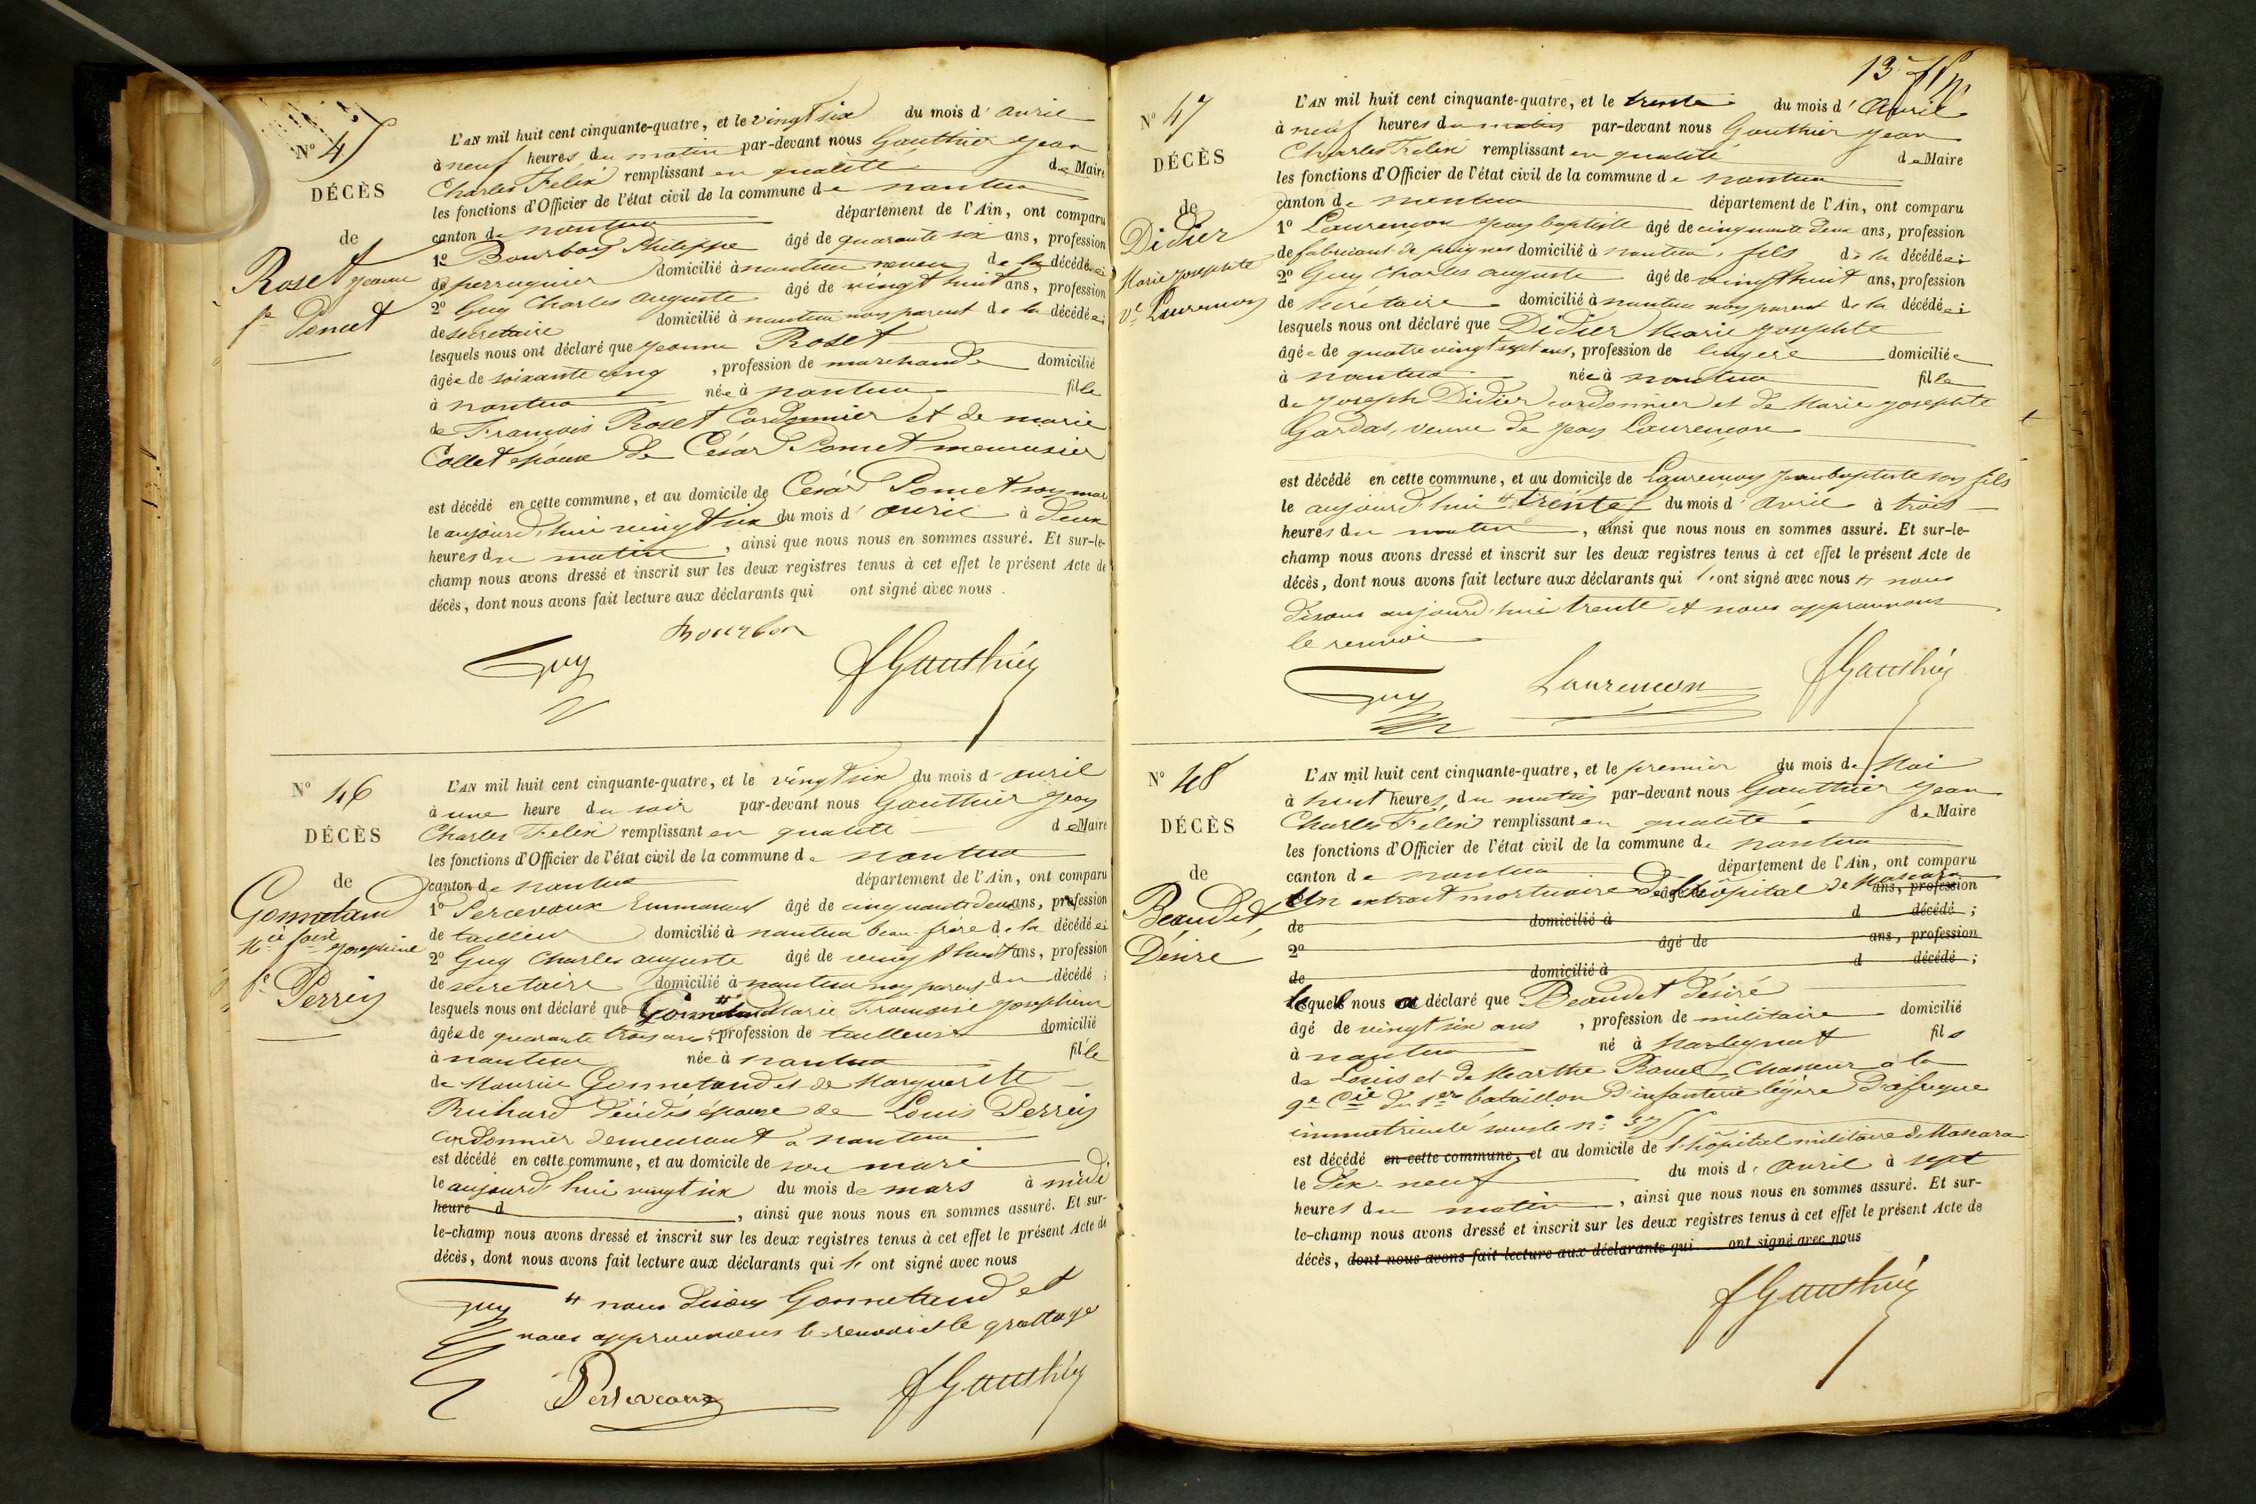 N° 45
DÉCÈS
de
Roset Jeanne
fe Poncet
L'AN mil huit cent cinquante-quatre, et le vingt six du mois d'avril
à neuf heures du matin par-devant nous Gauthier Jean
Charles Felix remplissant en qualité de Maire
les fonctions d'Officier de l'état civil de la commune de nantua
canton de nantua département de l'Ain, ont comparu
1° Bourbon Philippe âgé de quarante six ans, profession
de perruquier domicilié à nantua neveu de la décédée;
2° Guy Charles auguste âgé de vingt huit ans, profession
de secretaire domicilié à nantua non parent de la décédée;
lesquels nous ont déclaré que Jeanne Roset
âgée de soixante cinq, profession de marchande domicilié
à nantua née à nantua fille
de François Roset Cordonnier et de marie
Collet épouse de César Poncet menuisier
est décédé en cette commune, et au domicile de César Poncet son mari
le aujourd'hui vingt six du mois d'avril à deux
heures du matin, ainsi que nous nous en sommes assuré. Et sur-le-
champ nous avons dressé et inscrit sur les deux registres tenus à cet effet le présent Acte de
décès, dont nous avons fait lecture aux déclarants qui ont signé avec nous.
Bourbon
Guy fGauthier
N° 46
DÉCÈS
de
Gonnetand
Mie foise Josephine
fe Perrin
L'AN mil huit cent cinquante-quatre, et le vingt six du mois d'avril
à une heure du soir par-devant nous Gauthier Jean
Charles Felix remplissant en qualité de Maire
les fonctions d'Officier de l'état civil de la commune de nantua
canton de nantua département de l'Ain, ont comparu
1° Percevaux Emmanuel âgé de cinquante deux ans, profession
de tailleur domicilié à nantua beau-frère de la décédée;
2° Guy Charles auguste âgé de vingt huit ans, profession
de secretaire domicilié à nantua non parent du décédé;
lesquels nous ont déclaré que Gonnetand Marie Françoise Josephine
âgée de quarante trois ans, profession de tailleuse domicilié
à nantua née à nantua fille
de Maurice Gonnetand et de Marguerite
Richard décédés épouse de Louis Perrin
cordonnier demeurant a nantua
est décédé en cette commune, et au domicile de son mari
le aujourd'hui vingt six du mois de mars à midi
heure d, ainsi que nous nous en sommes assuré. Et sur-
le-champ nous avons dressé et inscrit sur les deux registres tenus à cet effet le présent Acte de
décès, dont nous avons fait lecture aux déclarants qui ont signé avec nous
Guy # nous disons Gonnetand et
nous approuvons le renvoi et le grattage
Perrevaux fGauthier
13
N° 47
DÉCÈS
de
Didier
Marie Josephte
Ve Laurençon
L'AN mil huit cent cinquante-quatre, et le trente du mois d'Avril
à neuf heures du matin par-devant nous Gauthier Jean
Charles Felix remplissant en qualité de Maire
les fonctions d'Officier de l'état civil de la commune de nantua
canton de nantua département de l'Ain, ont comparu
1° Laurençon Jean baptiste âgé de cinquante deux ans, profession
de fabricant de peignes domicilié à nantua, fils de la décédée;
2° Guy Charles auguste âgé de vingt huit ans, profession
de secrétaire domicilié à nantua non parent de la décédée;
lesquels nous ont déclaré que Didier Marie Josephte
âgée de quatre vingt sept ans, profession de lingère domiciliée
à nantua née à nantua fille
de Joseph Didier cordonnier et de Marie Josephte
Gardas, veuve de Jean Laurençon
est décédé en cette commune, et au domicile de Laurençon Jean baptiste son fils
le aujourd'hui # trente du mois d'avril à trois
heures du matin, ainsi que nous nous en sommes assuré. Et sur-le-
champ nous avons dressé et inscrit sur les deux registres tenus à cet effet le présent Acte de
décès, dont nous avons fait lecture aux déclarants qui ont signé avec nous # nous
disons aujourd'hui trente et nous approuvons
le renvoi
Guy Laurencon fGauthier
N° 48
DÉCÈS
de
Beaudet
Désiré
L'AN mil huit cent cinquante-quatre, et le premier du mois de Mai
à huit heures du matin par-devant nous Gauthier Jean
Charles Félix remplissant en qualité de Maire
les fonctions d'Officier de l'état civil de la commune de nantua
canton de nantua département de l'Ain, ont comparu
Un extrait mortuaire de l'hôpital de Mascara âgé de ans, profession
de domicilié à d décédé;
2° âgé de ans, profession
de domicilié à d décédé;
lequel nous a déclaré que Beaudet Désiré
âgé de vingt six ans, profession de militaire domicilié
à nantua né à Martignat fils
de Louis et de Marthe Ravet Chasseur à la
9e Cie du 1er bataillon d'infanterie légère d'afrique
immatriculé sous le n°
est décédé en cette commune, et au domicile de l'hôpital militaire de Mascara
le dix-neuf du mois d'avril à sept
heures du matin, ainsi que nous nous en sommes assuré. Et sur-
le-champ nous avons dressé et inscrit sur les deux registres tenus à cet effet le présent Acte de
décès, dont nous avons fait lecture aux déclarants qui ont signé avec nous
fGauthier